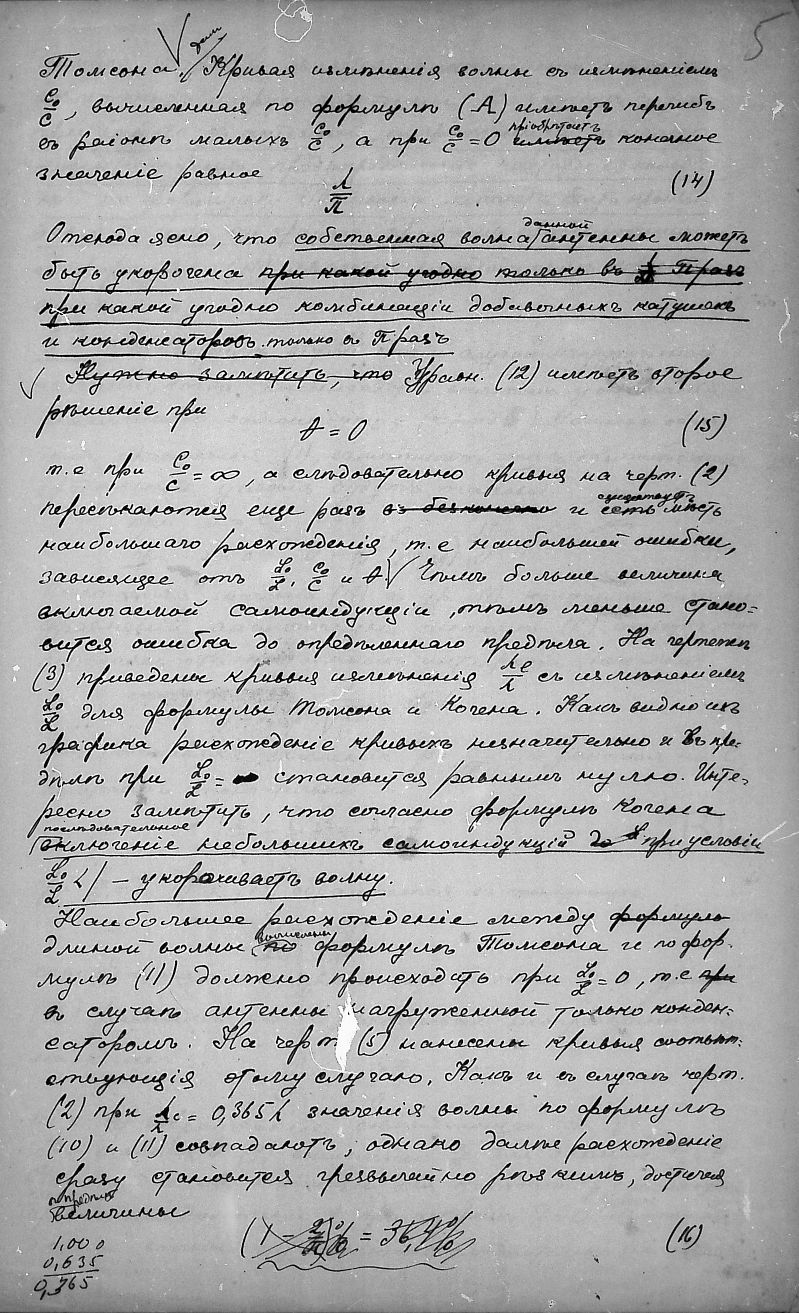 5
Томсона. дали Кривая измѣненія волны съ измѣненіемъ
C₀/C, вычисленная по формулѣ (А) имѣетъ перегибъ
въ районѣ малыхъ C₀/C, а при C₀/C = 0 имѣетъ пріобрѣтаетъ конечное
значеніе равное
λ/π (14)
Отсюда ясно, что собственная волна данной антенны можетъ
быть укорочена при какой угодно только въ π разъ
при какой угодно комбинаціи добавочныхъ катушекъ
и конденсаторовъ только въ π разъ
Нужно замѣтить, что Уравн. (12) имѣетъ второе
рѣшеніе при
A = 0 (15)
т.е при C₀/C = ∞, а слѣдовательно кривыя на черт. (2)
пересѣкаются еще разъ въ безконечно и есть существуетъ мѣсто
наибольшаго расхожденія, т.е наибольшей ошибки,
зависящее отъ L₀/L, C₀/C и A. Чѣмъ больше величина
включаемой самоиндукціи, тѣмъ меньше стано-
вится ошибка до опредѣленнаго предѣла. На чертежѣ
(3) приведены кривыя измѣненія λe/λ съ измѣненіемъ
L₀/L для формулы Томсона и Когена. Какъ видно изъ
графика расхожденіе кривыхъ незначительно и въ пре-
дѣлѣ при L₀/L = становится равнымъ нулю. Инте-
ресно замѣтить, что согласно формулѣ Когена
послѣдовательное
включеніе небольшихъ самоиндукцій до L при условіи
L₀/L < 1 — укорачиваетъ волну.
Наибольшее расхожденіе между формулы
длиной волны по вычисленной формулѣ Томсона и по фор-
мулѣ (11) должно происходить при L₀/L = 0, т.е при
въ случаѣ антенны нагруженной только конден-
саторомъ. На черт (5) нанесены кривыя соотвѣт-
ствующія этому случаю. Какъ и въ случаѣ черт.
(2) при = 0,365 λ значенія волны по формулѣ
(10) и (11) совпадаютъ, однако далѣе расхожденіе
сразу становится чрезвычайно рѣзкимъ, достигая
въ предѣлѣ
величины
(1 - 2/π)% = 36,4% (16)
1,000
0,635
0,365